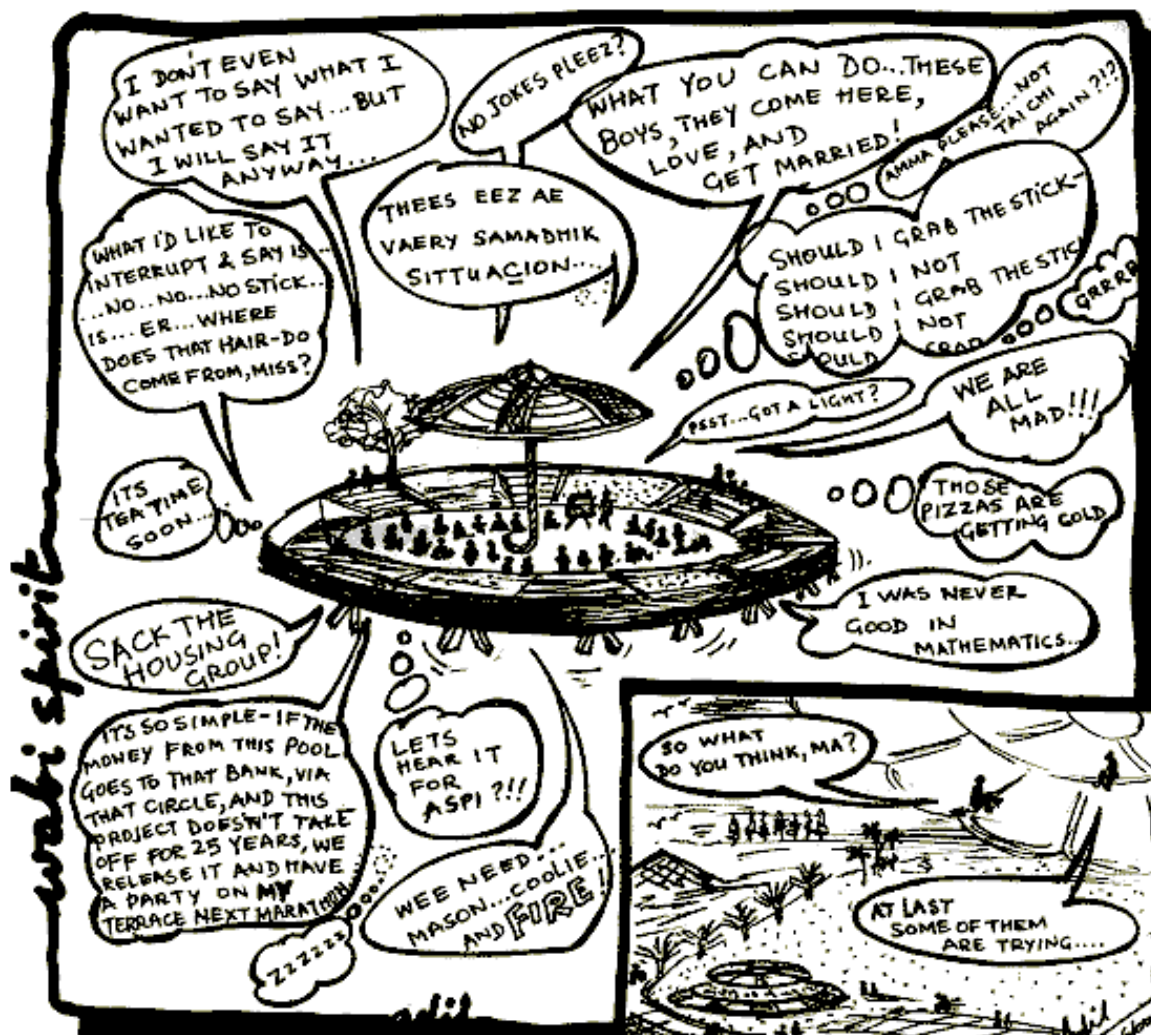 I DON'T EVEN
WANT TO SAY WHAT I
WANTED TO SAY...BUT
I WILL SAY IT
ANYWAY...
NO JOKES PLEEZ?
WHAT YOU CAN DO...THESE
BOYS, THEY COME HERE,
LOVE, AND
GET MARRIED!
AMMA PLEASE...NOT
TAI CHI
AGAIN?!?
THEES EEZ AE
VAERY SAMADHIK
SITTUACION....
WHAT I'D LIKE TO
INTERRUPT & SAY IS...
...NO..NO...NO STICK...
IS...ER...WHERE
DOES THAT HAIR-DO
COME FROM, MISS?
SHOULD I GRAB THE STICK-
SHOULD I NOT
SHOULD I GRAB THE STICK
SHOULD I NOT
SHOULD GRAB
GRRRR
PSST...GOT A LIGHT?
WE ARE
ALL
MAD!!!
ITS
TEA TIME
SOON...
THOSE
PIZZAS ARE
GETTING COLD
I WAS NEVER
GOOD IN
MATHEMATICS...
SACK THE
HOUSING
GROUP!
ITS SO SIMPLE-IF THE
MONEY FROM THIS POOL
GOES TO THAT BANK, VIA
THAT CIRCLE, AND THIS
PROJECT DOESN'T TAKE
OFF FOR 25 YEARS, WE
RELEASE IT AND HAVE
A PARTY ON MY
TERRACE NEXT
LETS
HEAR IT
FOR
ASPI?!!
WEE NEED...
MASON...COOLIE...
AND FIRE!
ZZZZZZ
SO WHAT
DO YOU THINK, MA?
AT LAST
SOME OF THEM
ARE TRYING....
wabi spirit